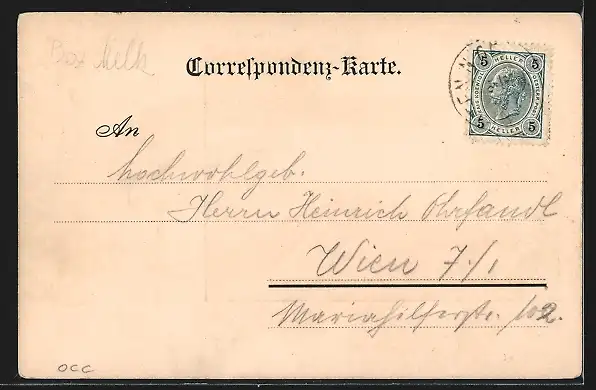 Box Melk
Correspondenz-Karte.
5 HELLER 5
5 HELLER 5
An
Hochwohlgeb.
Herrn Heinrich Ohrfandl
Wien 7./1
Mariahilferstr. 102.
occ